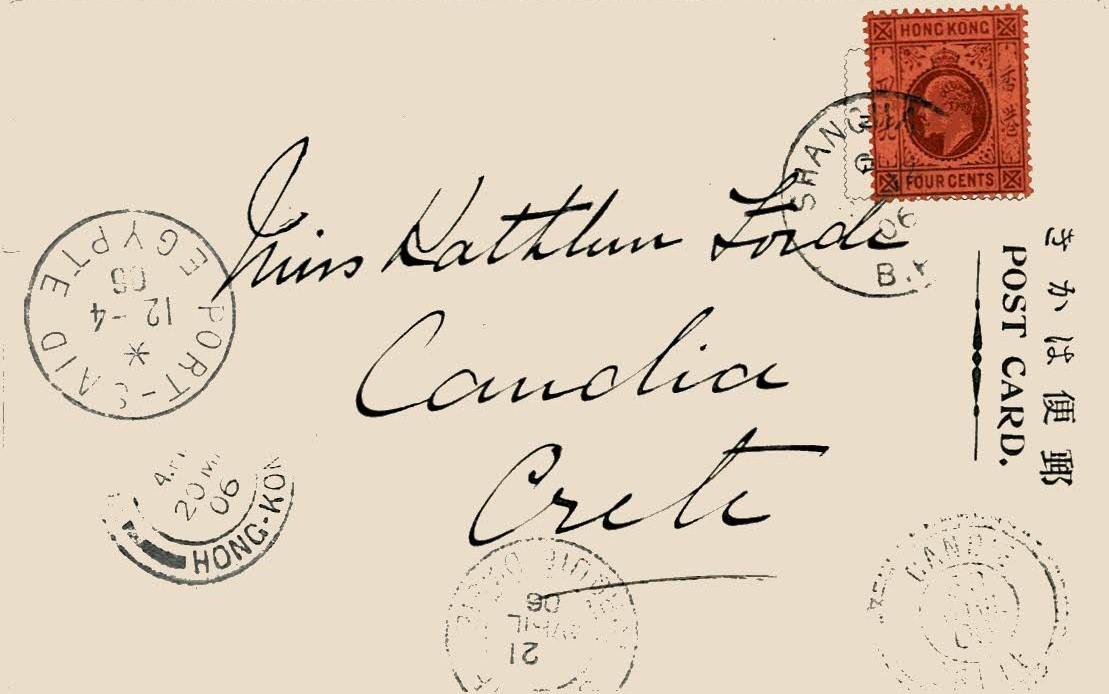 HONG KONG
香港
FOUR CENTS
SHANGHA
06
B.
Miss Kathleen Forde
Candia
Crete
郵便はかき
POST CARD.
PORT-SAID
12-4
06
EGYPTE
20 M
06
HONG-KON
21
AVRIL
06
CANDI